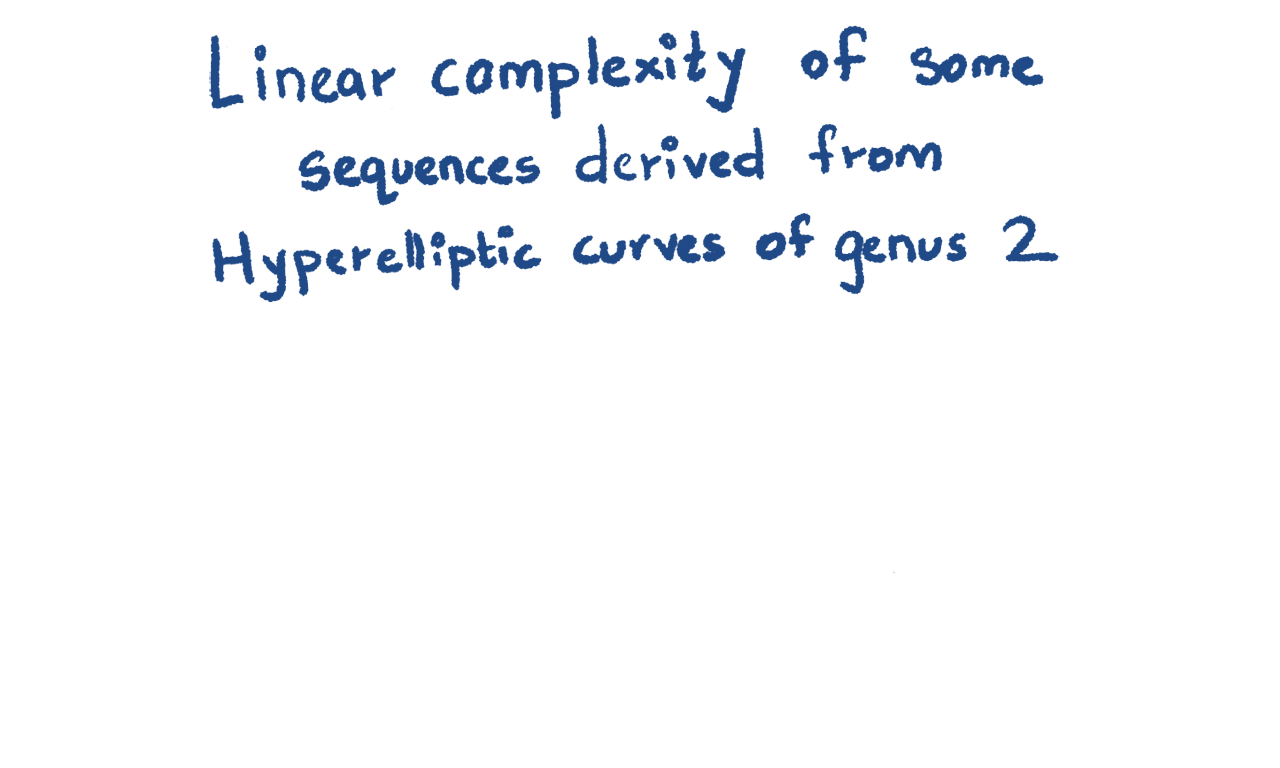 Linear complexity of some
sequences derived from
Hyperelliptic curves of genus 2